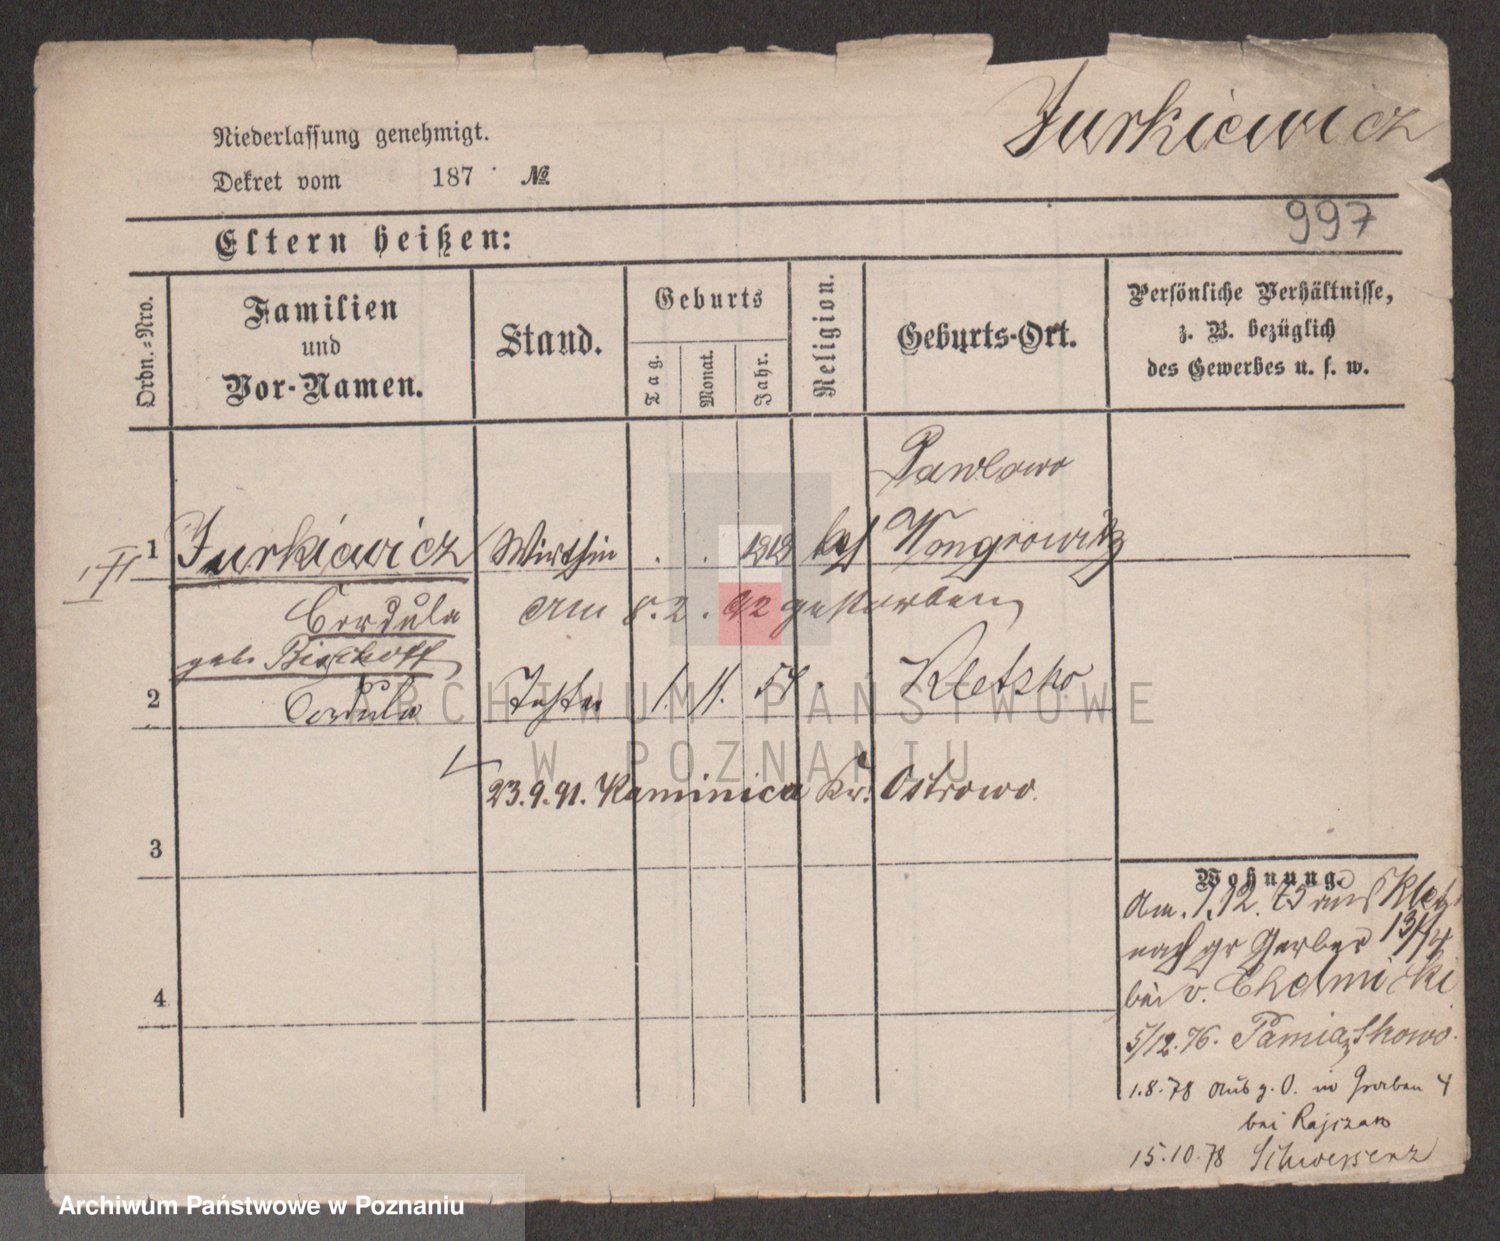 Jurkiewicz
Niederlassung genehmigt.
Dekret vom 187 №
997
Eltern heißen:
Ordn.-Nro.
Familien
und
Vor-Namen.
Stand.
Geburts
Tag.
Monat.
Jahr.
Religion.
Geburts-Ort.
Persönliche Verhältnisse,
z. B. bezüglich
des Gewerbes u. s. w.
Pawlowo
1 Jurkiewicz Wirthin . . 1818 kath Wongrowitz
II
Cordula am 8. 2. 92 gestorben
geb. Bischoff
2 Cordula Tochter 1. 11. 57 Kletzko
23.9.91. Kaminica Kr. Ostrowo.
3
Wohnung.
Am 1.12.75 aus Kletzko
nach gr Gerber 13/14
bei v. Chelmicki
4
5/12.76. Pamiątkowo.
1.8.78 aus g. O. in Graben 4
bei Rajczak
15.10.78 Schwersenz
ARCHIWUM PAŃSTWOWE
W POZNANIU
Archiwum Państwowe w Poznaniu